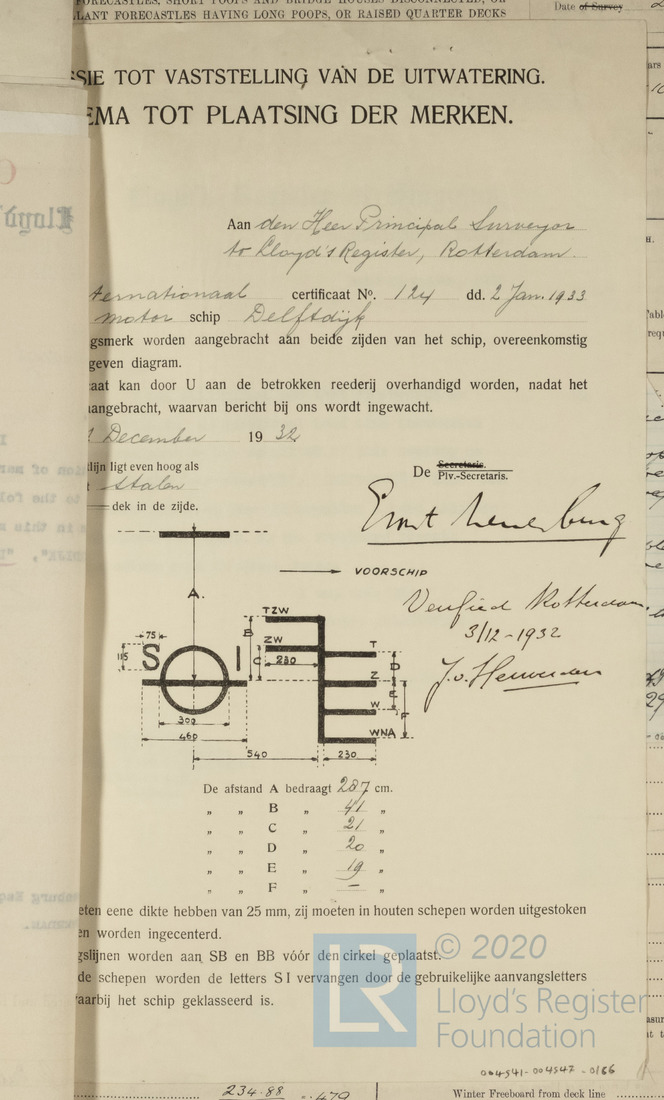 FORECASTLES, SHORT POOPS AND BRIDGE HOUSES DISCONNECTED, OR
LLANT FORECASTLES HAVING LONG POOPS, OR RAISED QUARTER DECKS
Date of Survey
SIE TOT VASTSTELLING VAN DE UITWATERING.
EMA TOT PLAATSING DER MERKEN.
Aan den Heer Principal Surveyor
to Lloyd's Register, Rotterdam.
ternationaal certificaat No. 124 dd. 2 Jan. 1933
motor schip Delftdijk
gsmerk worden aangebracht aan beide zijden van het schip, overeenkomstig
geven diagram.
aat kan door U aan de betrokken reederij overhandigd worden, nadat het
aangebracht, waarvan bericht bij ons wordt ingewacht.
December 1932
lijn ligt even hoog als
t stalen
dek in de zijde.
De Secretaris.
Plv.-Secretaris.
VOORSCHIP
A.
Verified Rotterdam
3/12-1932
TZW
B
ZW
C
230
75
115
S I
T
D
Z
E
W
F
WNA
300
460
540
230
De afstand A bedraagt 287 cm.
„ „ B „ 41 „
„ „ C „ 21 „
„ „ D „ 20 „
„ „ E „ 19 „
„ „ F „ — „
eten eene dikte hebben van 25 mm, zij moeten in houten schepen worden uitgestoken
en worden ingecenterd.
gslijnen worden aan SB en BB vóór den cirkel geplaatst.
de schepen worden de letters S I vervangen door de gebruikelijke aanvangsletters
aarbij het schip geklasseerd is.
LR
© 2020
Lloyd's Register
Foundation
004541-004547-0166
234.88
Winter Freeboard from deck line